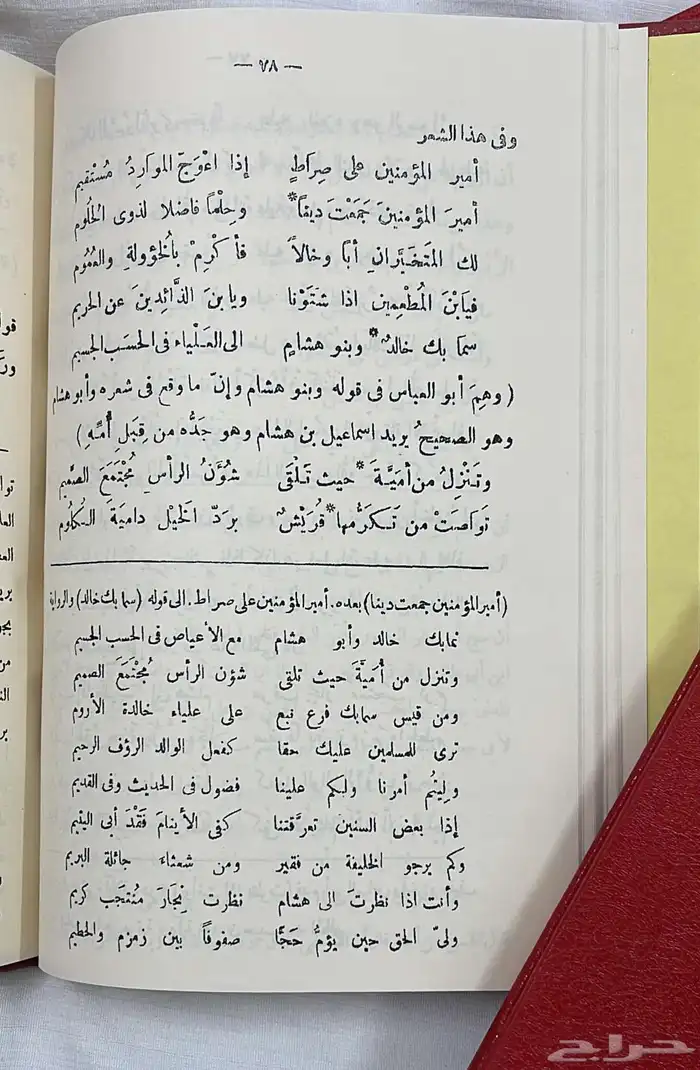 — ٧٨ —
وفى هذا الشعر
أمير المؤمنين على صِراطٍ إذا اعْوَجّ الموارِدُ مُسْتقيم
أميرَ المؤمنينَ جَمَعْتَ دينًا* وحِلْمًا فاضلا لذوى الحُلُوم
لك المتَخَيَّرانِ أبًا وخالاً فأكْرِمْ بالخؤولةِ والعُمُوم
فيابْنَ المُطْعِمِين اذا شَتَوْنا ويابنَ الذَّائِدِينَ عن الحريم
سمَا بك خالدٌ* وبنو هشامٍ الى العَلْياء فى الحَسَب الجسيم
( وهِمَ أبو العباس فى قوله وبنو هشام وإنّ ما وقع فى شعره وأبو هشام
وهو الصحيحُ يريد اسماعيل بن هشام وهو جَدُّه من قِبَلِ أُمّهِ )
وتَنْزِلُ من أمَيَّةَ* حيث تَلْقَى شُؤَنُ الرأسِ مُجْتَمَعَ الصَّمِيم
تَواصَتْ من تَكَرُّمها* قُرَيْشٌ بردّ الخَيْل داميَةَ الكُلُوم
(أمير المؤمنين جمعت دينا) بعده. أمير المؤمنين على صراط. الى قوله (سما بك خالد) والرواية
نمابك خالد وأبو هشام مع الأعياص فى الحسب الجسيم
وتنزل من أُمَيَّةَ حيث تلقى شؤن الرأس مُجْتَمَعَ الصميم
ومن قيس سمابك فرع نبع على علياء خالدة الأروم
ترى للمسلمين عليك حقا كفعل الوالد الرؤف الرحيم
وليتُم أمرنا ولكم علينا فضول فى الحديث وفى القديم
إذا بعض السنين تعرَّقتنا كفى الأيتامَ فَقْدَ أبى اليتيم
وكم يرجو الخليفة من فقير ومن شعثاء جائلة البريم
وأنت اذا نظرتَ الى هشام نظرت نِجَارَ مُنتَجَب كريم
ولىّ الحق حين يؤمُّ حَجًّا صفوفاً بين زمزم والحطيم
حراج